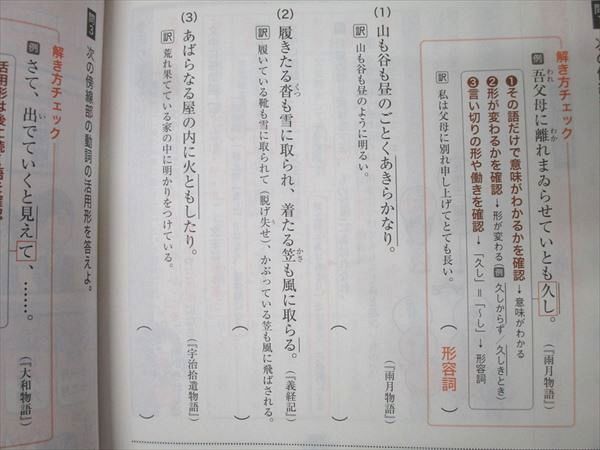 解き方チェック
例 吾父母に離れまゐらせていとも久し。(『雨月物語』)
われ
わか
❶その語だけで意味がわかるかを確認→意味がわかる
❷形が変わるかを確認→形が変わる(例 久しからず/久しきとき)
❸言い切りの形や働きを確認→「久し」＝「〜し」→形容詞
訳 私は父母に別れ申し上げてとても長い。
形容詞
(1) 山も谷も昼のごとくあきらかなり。(『雨月物語』)
訳 山も谷も昼のように明るい。
( )
(2) 履きたる沓も雪に取られ、着たる笠も風に取らる。(『義経記』)
くつ
かさ
訳 履いている靴も雪に取られて(脱げ失せ)、かぶっている笠も風に飛ばされる。
( )
(3) あばらなる屋の内に火ともしたり。(『宇治拾遺物語』)
訳 荒れ果てている家の中に明かりをつけている。
( )
問3 次の傍線部の動詞の活用形を答えよ。
解き方チェック
例 さて、出でていくと見えて、……。(『大和物語』)
い
活用形は後に続